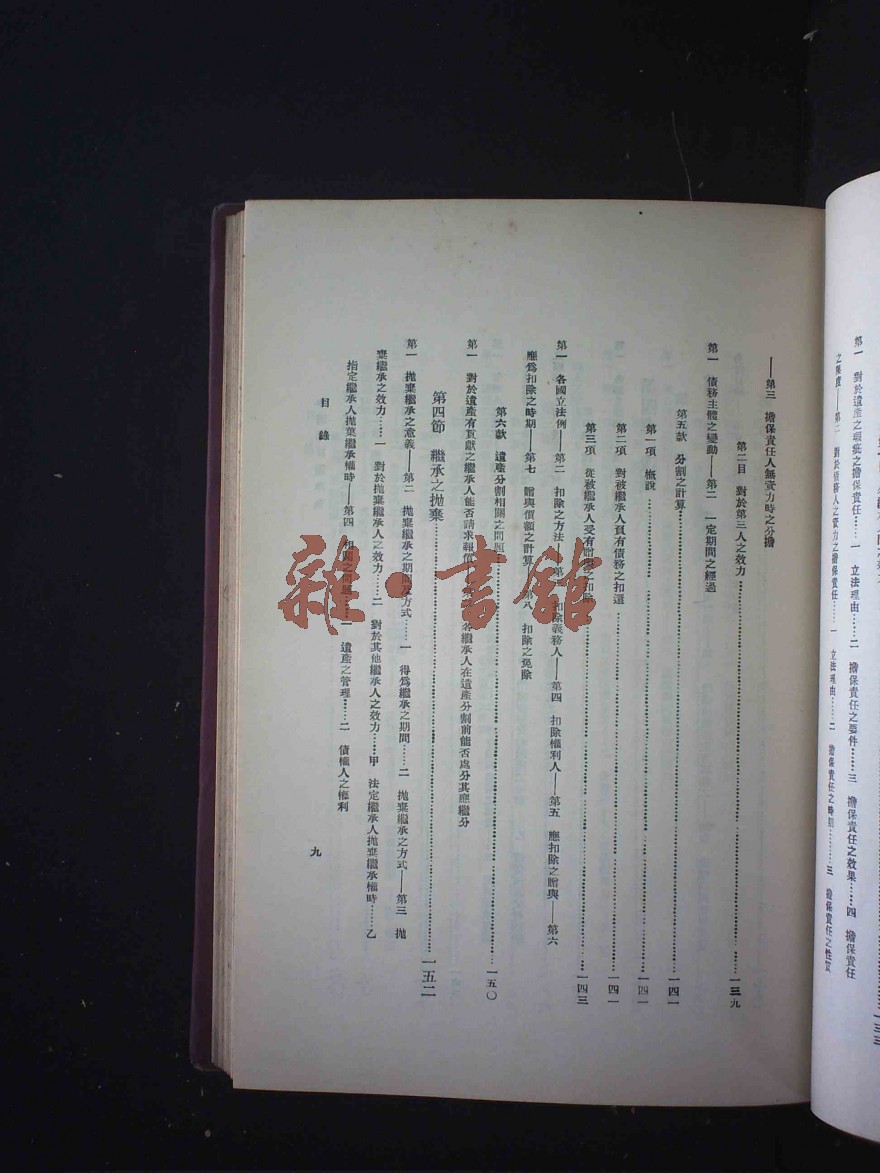 第一 對於遺產之瑕疵之擔保責任……一 立法理由……二 擔保責任之要件……三 擔保責任之效果……四 擔保責任
對於債務人之資力之擔保責任……一 立法理由……二 擔保責任之時期……三 擔保責任之性質
一三三
——第三 擔保責任人無資力時之分擔
第二目 對於第三人之效力……一三九
第一 債務主體之變動——第二 一定期間之經過
第五款 分割之計算……一四一
第一項 概說……一四一
第二項 對被繼承人負有債務之扣還……一四一
第三項 從被繼承人受有贈與之扣除……一四三
第一 各國立法例——第二 扣除之方法——第三 扣除義務人——第四 扣除權利人——第五 應扣除之贈與——第六
應為扣除之時期——第七 贈與價額之計算——第八 扣除之免除
第六款 遺產分割相關之問題……一五〇
第一 對於遺產有貢獻之繼承人能否請求報償 各繼承人在遺產分割前能否處分其應繼分
第四節 繼承之拋棄……一五二
第一 拋棄繼承之意義——第二 拋棄繼承之期間及方式……一 得為繼承之期間……二 拋棄繼承之方式——第三 拋
棄繼承之效力……一 對於拋棄繼承人之效力……二 對於其他繼承人之效力……甲 法定繼承人拋棄繼承權時……乙
指定繼承人拋棄繼承權時——第四 相關之問題……一 遺產之管理……二 債權人之權利
目錄
九
雜·書館